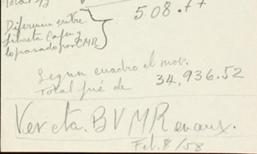 Total
508.77
Diferencia entre
libreta Caja y
lo pasado por CMR
Segun cuadro el mov.
Total fué de 34,936.52
Ver cta. BVMR en aux.
Feb. 8/58